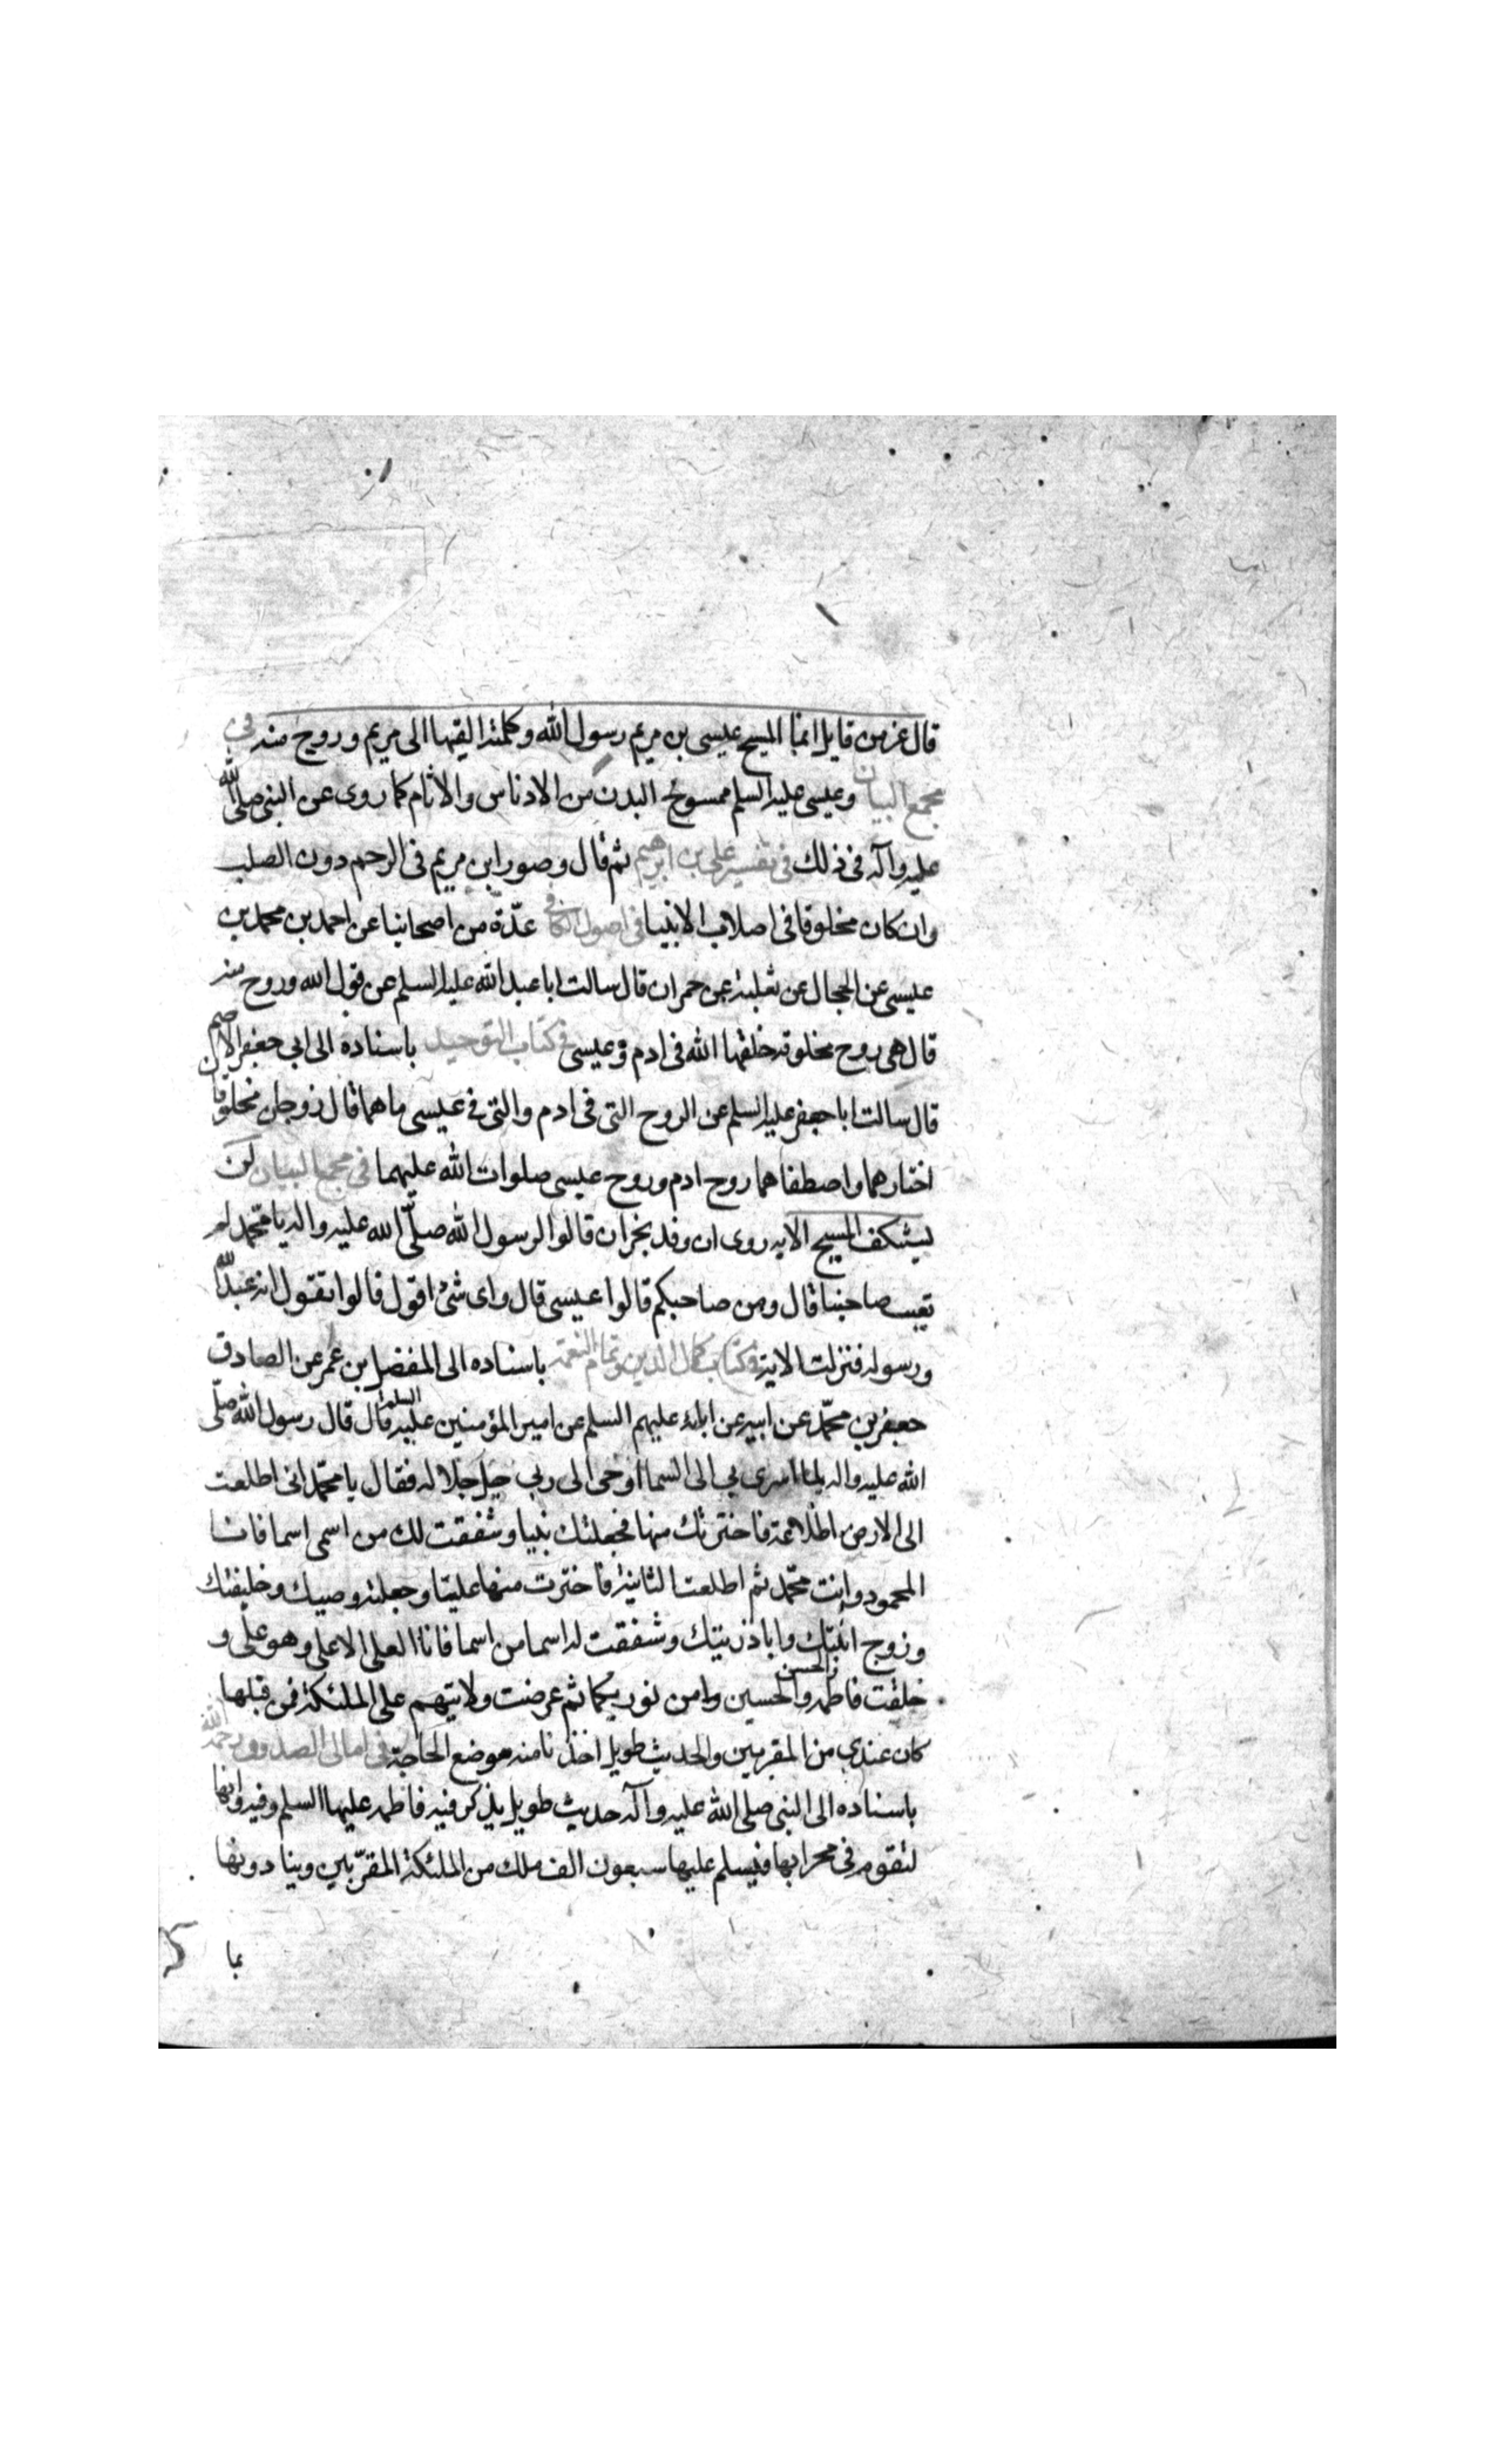 قال عز من قايل انما المسيح عيسى بن مريم رسول الله وكلمته القيها الى مريم وروح منه في
مجمع البيان وعيسى عليه السلم ممسوح البدن من الادناس والاثام كما روى عن النبى صلى الله
عليه وآله في ذلك في تفسير على بن ابرهيم ثم قال وصور ابن مريم في الرحم دون الصلب
وان كان مخلوقا في اصلاب الانبيا في اصول الكافي عدّة من اصحابنا عن احمد بن محمد بن
عيسى عن الحجال عن ثعلبة عن حمران قال سالت ابا عبد الله عليه السلم عن قول الله وروح منه
قال هى روح مخلوقة خلقها الله في ادم وعيسى في كتاب التوحيد باسناده الى ابي جعفر الاصم
قال سالت ابا جعفر عليه السلم عن الروح التى في ادم والتى في عيسى ما هما قال زوجان مخلوقا
اختارهما واصطفاهما روح ادم وروح عيسى صلوات الله عليهما في مجمع البيان لن
يستنكف المسيح الايه روى ان وفد نجران قالوا لرسول الله صلّى الله عليه واله يا محمّد لم
تعيب صاحبنا قال ومن صاحبكم قالوا عيسى قال واى شئ اقول قالوا تقول انه عبد الله
ورسوله فنزلت الاية في كتاب كمال الدين وتمام النعمة باسناده الى المفضل بن عمر عن الصادق
جعفر بن محمّد عن ابيه عن ابائه عليهم السلم عن امير المؤمنين عليه السلم قال قال رسول الله صلّى
الله عليه واله لما اسرى بي الى السما اوحى الى ربي جل جلاله فقال يا محمّد انى اطلعت
الى الارض اطلاعة فاخترتك منها فجعلتك نبيا وشققت لك من اسمى اسما فانا
المحمود وانت محمّد ثم اطلعت الثانية فاخترت منها عليّا وجعلته وصيك وخليفتك
وزوج ابنتك وابا ذريتك وشققت له اسما من اسما فانا العلى الاعلى وهو على و
خلقت فاطمه والحسن والحسين وا من نوريكما ثم عرضت ولايتهم على الملئكة فمن قبلها
كان عندي من المقربين والحديث طويل اخذنا منه موضع الحاجة في امالى الصدوق رحمه الله
باسناده الى النبى صلى الله عليه وآله حديث طويل يذكر فيه فاطمه عليها السلم وفيه وانها
لتقوم في محرابها فيسلم عليها سبعون الف ملك من الملئكة المقرّبين وينادونها
بما